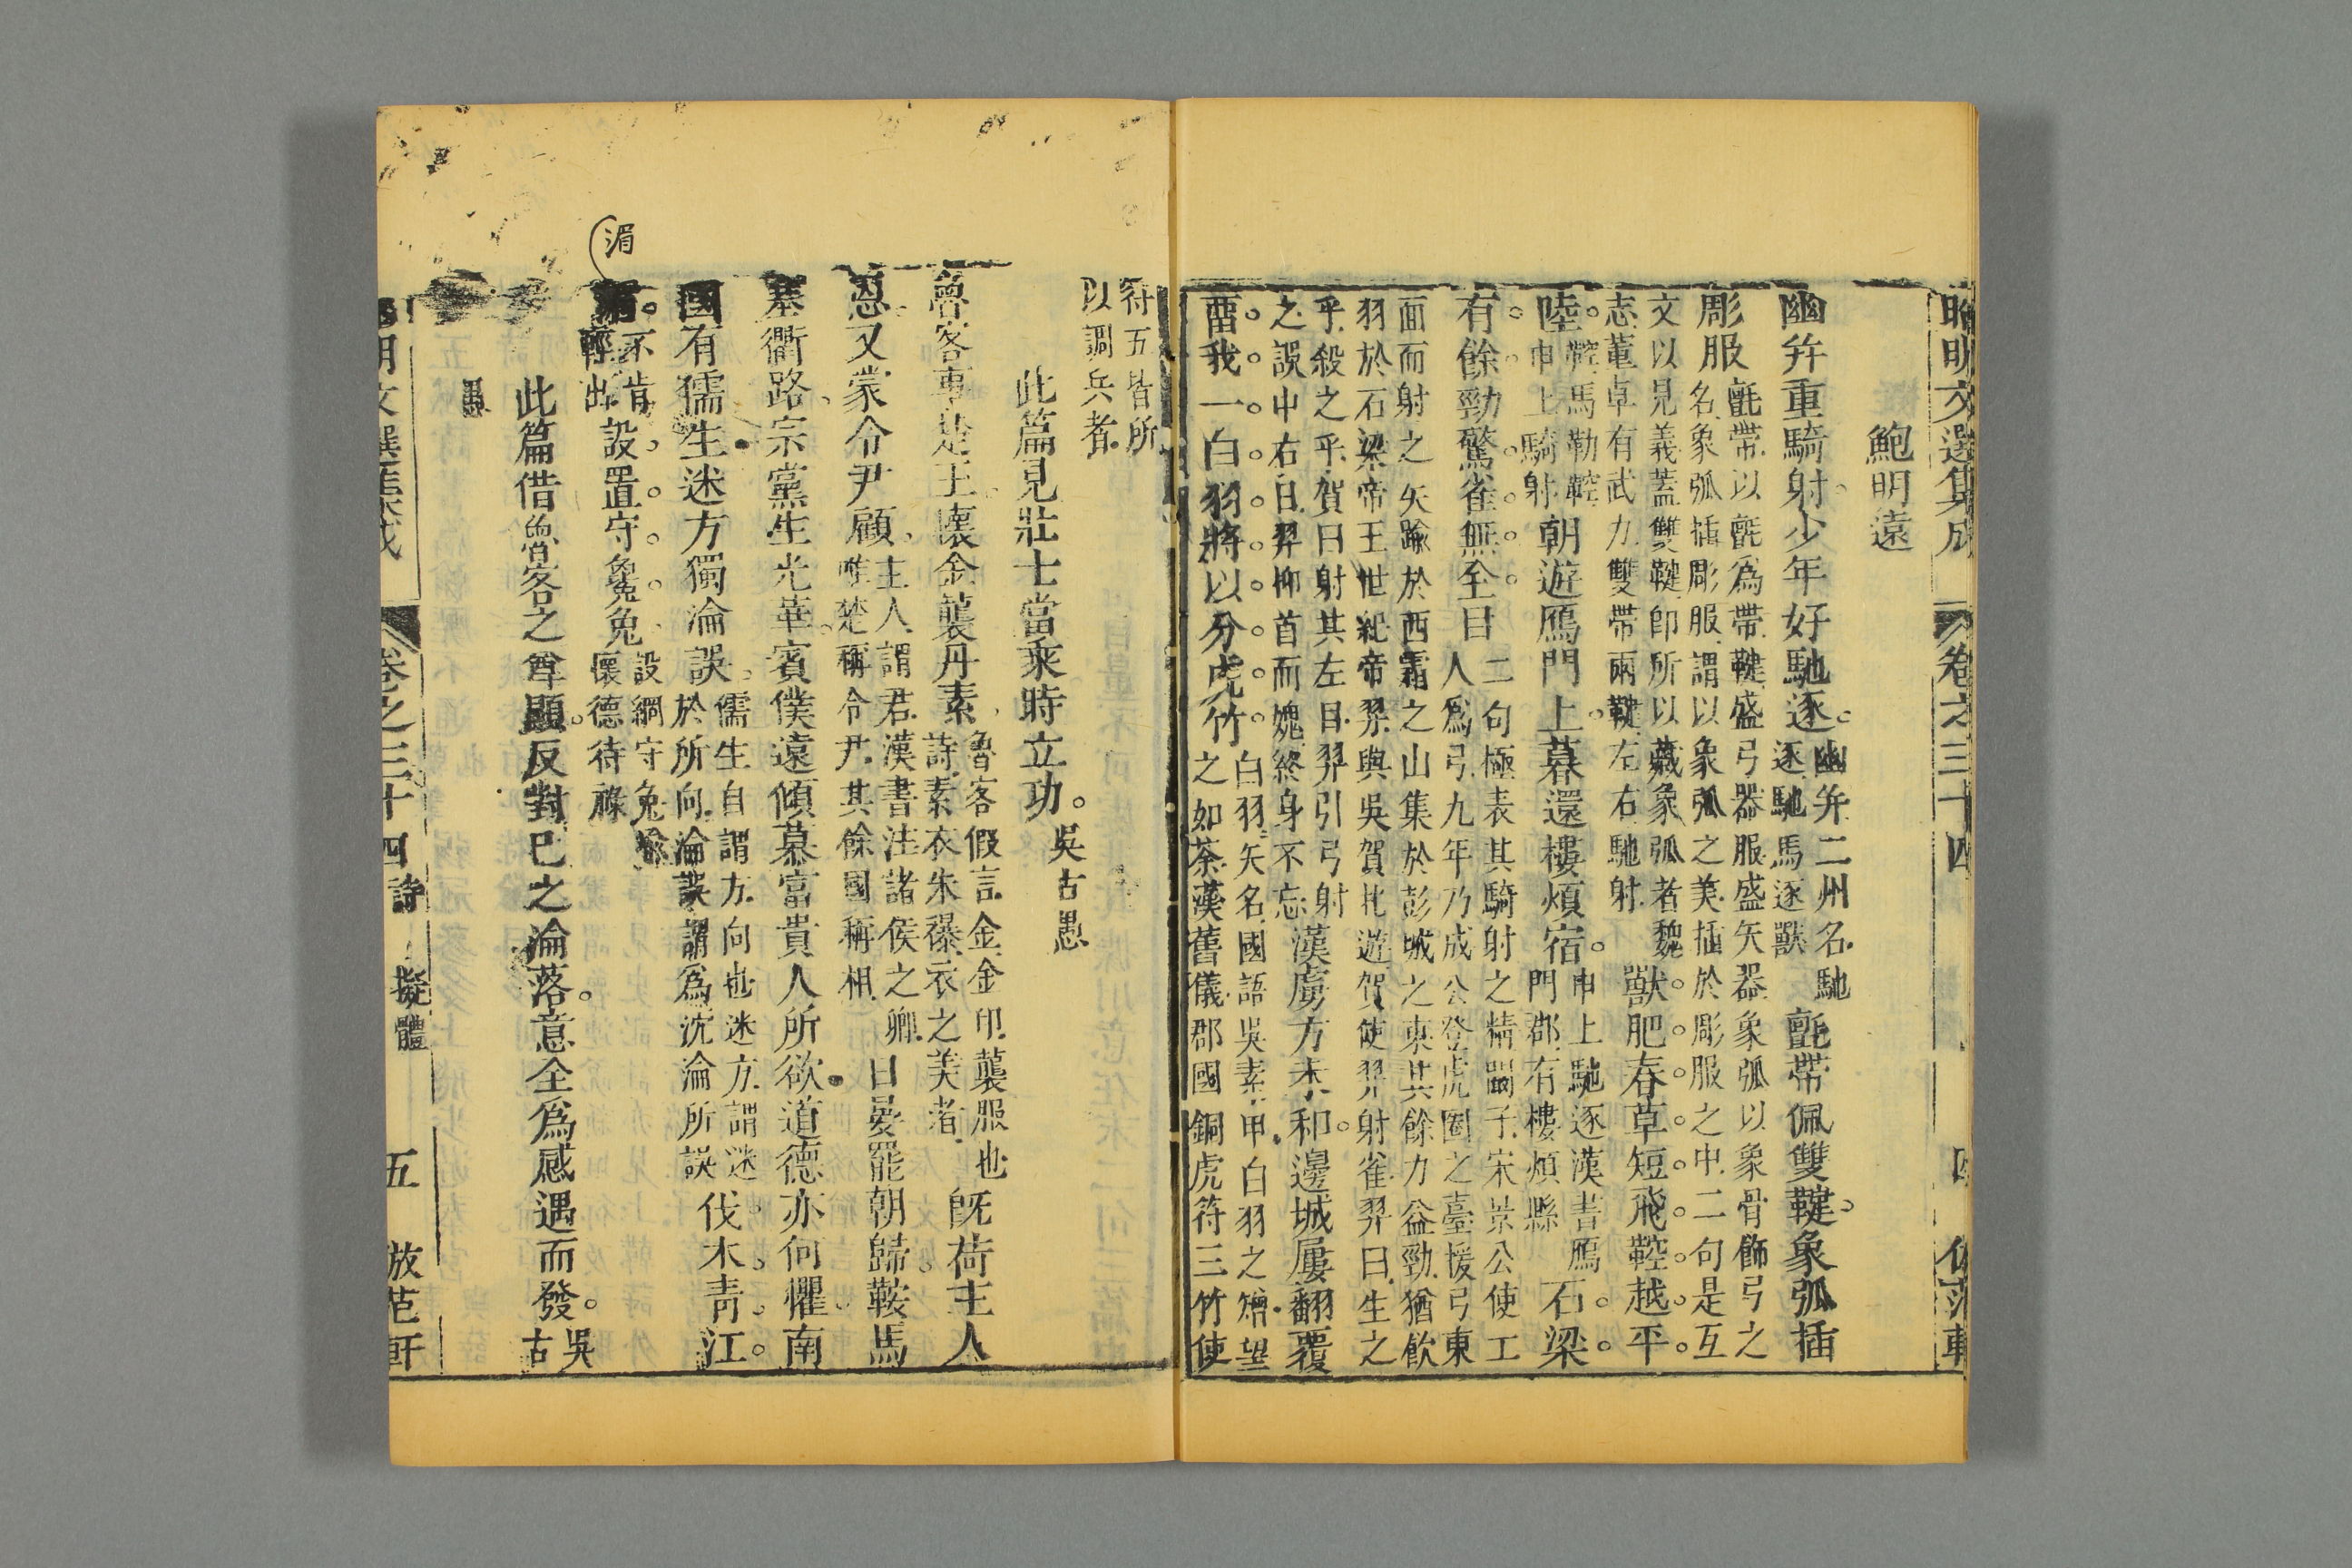 昭明文選集成　卷之三十四　四
鮑明遠
幽并重騎射少年好馳逐幽并二州名馳逐馳馬逐獸氊帶佩雙鞬象弧插
彫服氊帶以氊為帶鞬盛弓器服盛矢器象弧以象骨飾弓之名象弧插彫服謂以象弧之美插於彫服之中二句是互
文以見義蓋雙鞬即所以藏象弧者魏志董卓有武力雙帶兩鞬左右馳射獸肥春草短飛鞚越平
陸鞚馬勒鞚申上騎射朝遊鴈門上暮還樓煩宿申上馳逐漢書鴈門郡有樓煩縣石梁
有餘勁驚雀無全目二句極表其騎射之精闞子宋景公使工人爲弓九年乃成公登虎圈之臺援弓東
面而射之矢踰於西霜之山集於彭城之東其餘力益勁猶飲羽於石梁帝王世紀帝羿與吳賀北遊賀使羿射雀羿曰生之
乎殺之乎賀曰射其左目羿引弓射之誤中右目羿仰首而媿終身不忘漢虜方未和邊城屢翻覆
畱我一白羽將以分虎竹白羽矢名國語吳素甲白羽之矰望之如荼漢舊儀郡國銅虎符三竹使
符五皆所以調兵者
此篇見壯士當乘時立功吳古愚
魯客事楚王懷金襲丹素魯客假言金金印襲服也詩素衣朱襮衣之美者旣荷主人
恩又蒙令尹顧主人謂君漢書注諸侯之卿唯楚稱令尹其餘國稱相日晏罷朝歸鞍馬
塞衢路宗黨生光華賓僕遠傾慕富貴人所欲道德亦何懼南
國有儒生迷方獨淪誤儒生自謂方向也迷方謂迷於所向淪誤謂爲沈淪所誤伐木青江
湄
不肯輕出設置守毚兔設網守兔喻懷德待祿
此篇借魯客之尊顯反對巳之淪落意全爲感遇而發吳古
愚
明文選集成　卷之三十四詩　擬體　五　倣范軒